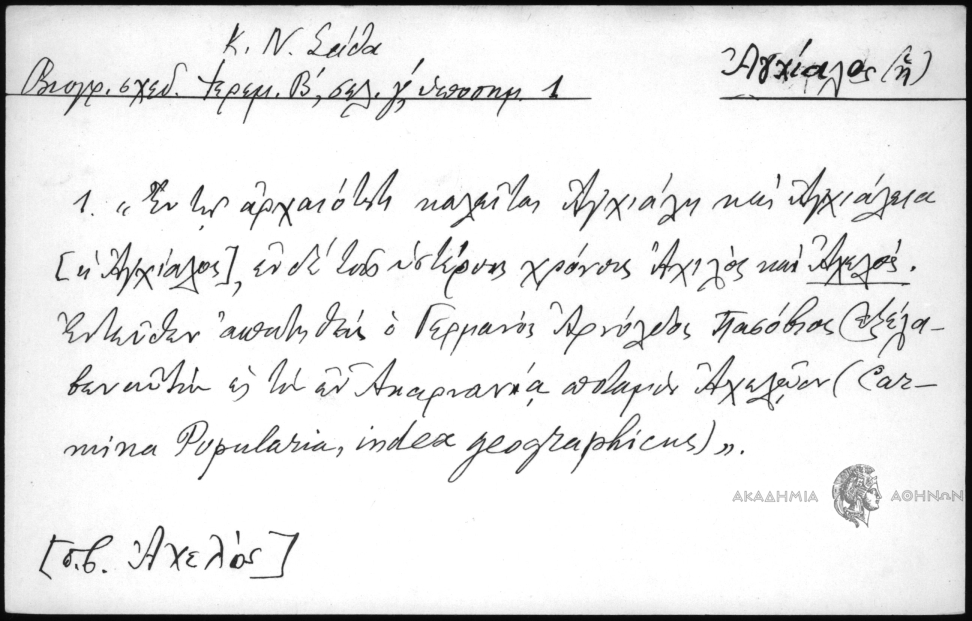 Κ. Ν. Σάθα
Βιογρ. σχεδ. Ἱερεμ. Β', σελ. γ', ὑποσημ. 1
Ἀγχίαλος (ἡ)
1. «Ἐν τῇ ἀρχαιότητι καλεῖται Ἀγχιάλη καὶ Ἀγχιάλεια
[ἡ Ἀγχίαλος], ἐν δὲ τοῖς ὑστέροις χρόνοις Ἀχιλὸς καὶ Ἀχελός.
Ἐντεῦθεν ἀπατηθεὶς ὁ Γερμανὸς Ἀρνόλδος Πασόβιος ἐξέλα-
βεν αὐτὴν εἰς τὸν ἐν Ἀκαρνανίᾳ ποταμὸν Ἀχελῷον (Car-
mina Popularia, index geographicus)».
ΑΚΑΔΗΜΙΑ ΑΘΗΝΩΝ
[π.β. Ἀχελός]